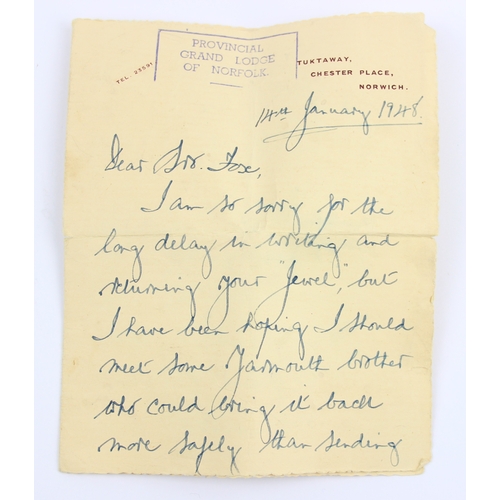 TEL. 23591
PROVINCIAL
GRAND LODGE
OF NORFOLK.
TUKTAWAY,
CHESTER PLACE,
NORWICH.
14th January 1948.
Dear Bro. Fox,
I am so sorry for the
long delay in writing and
returning your "Jewel", but
I have been hoping I should
meet some Yarmouth brother
who could bring it back
more safely than sending